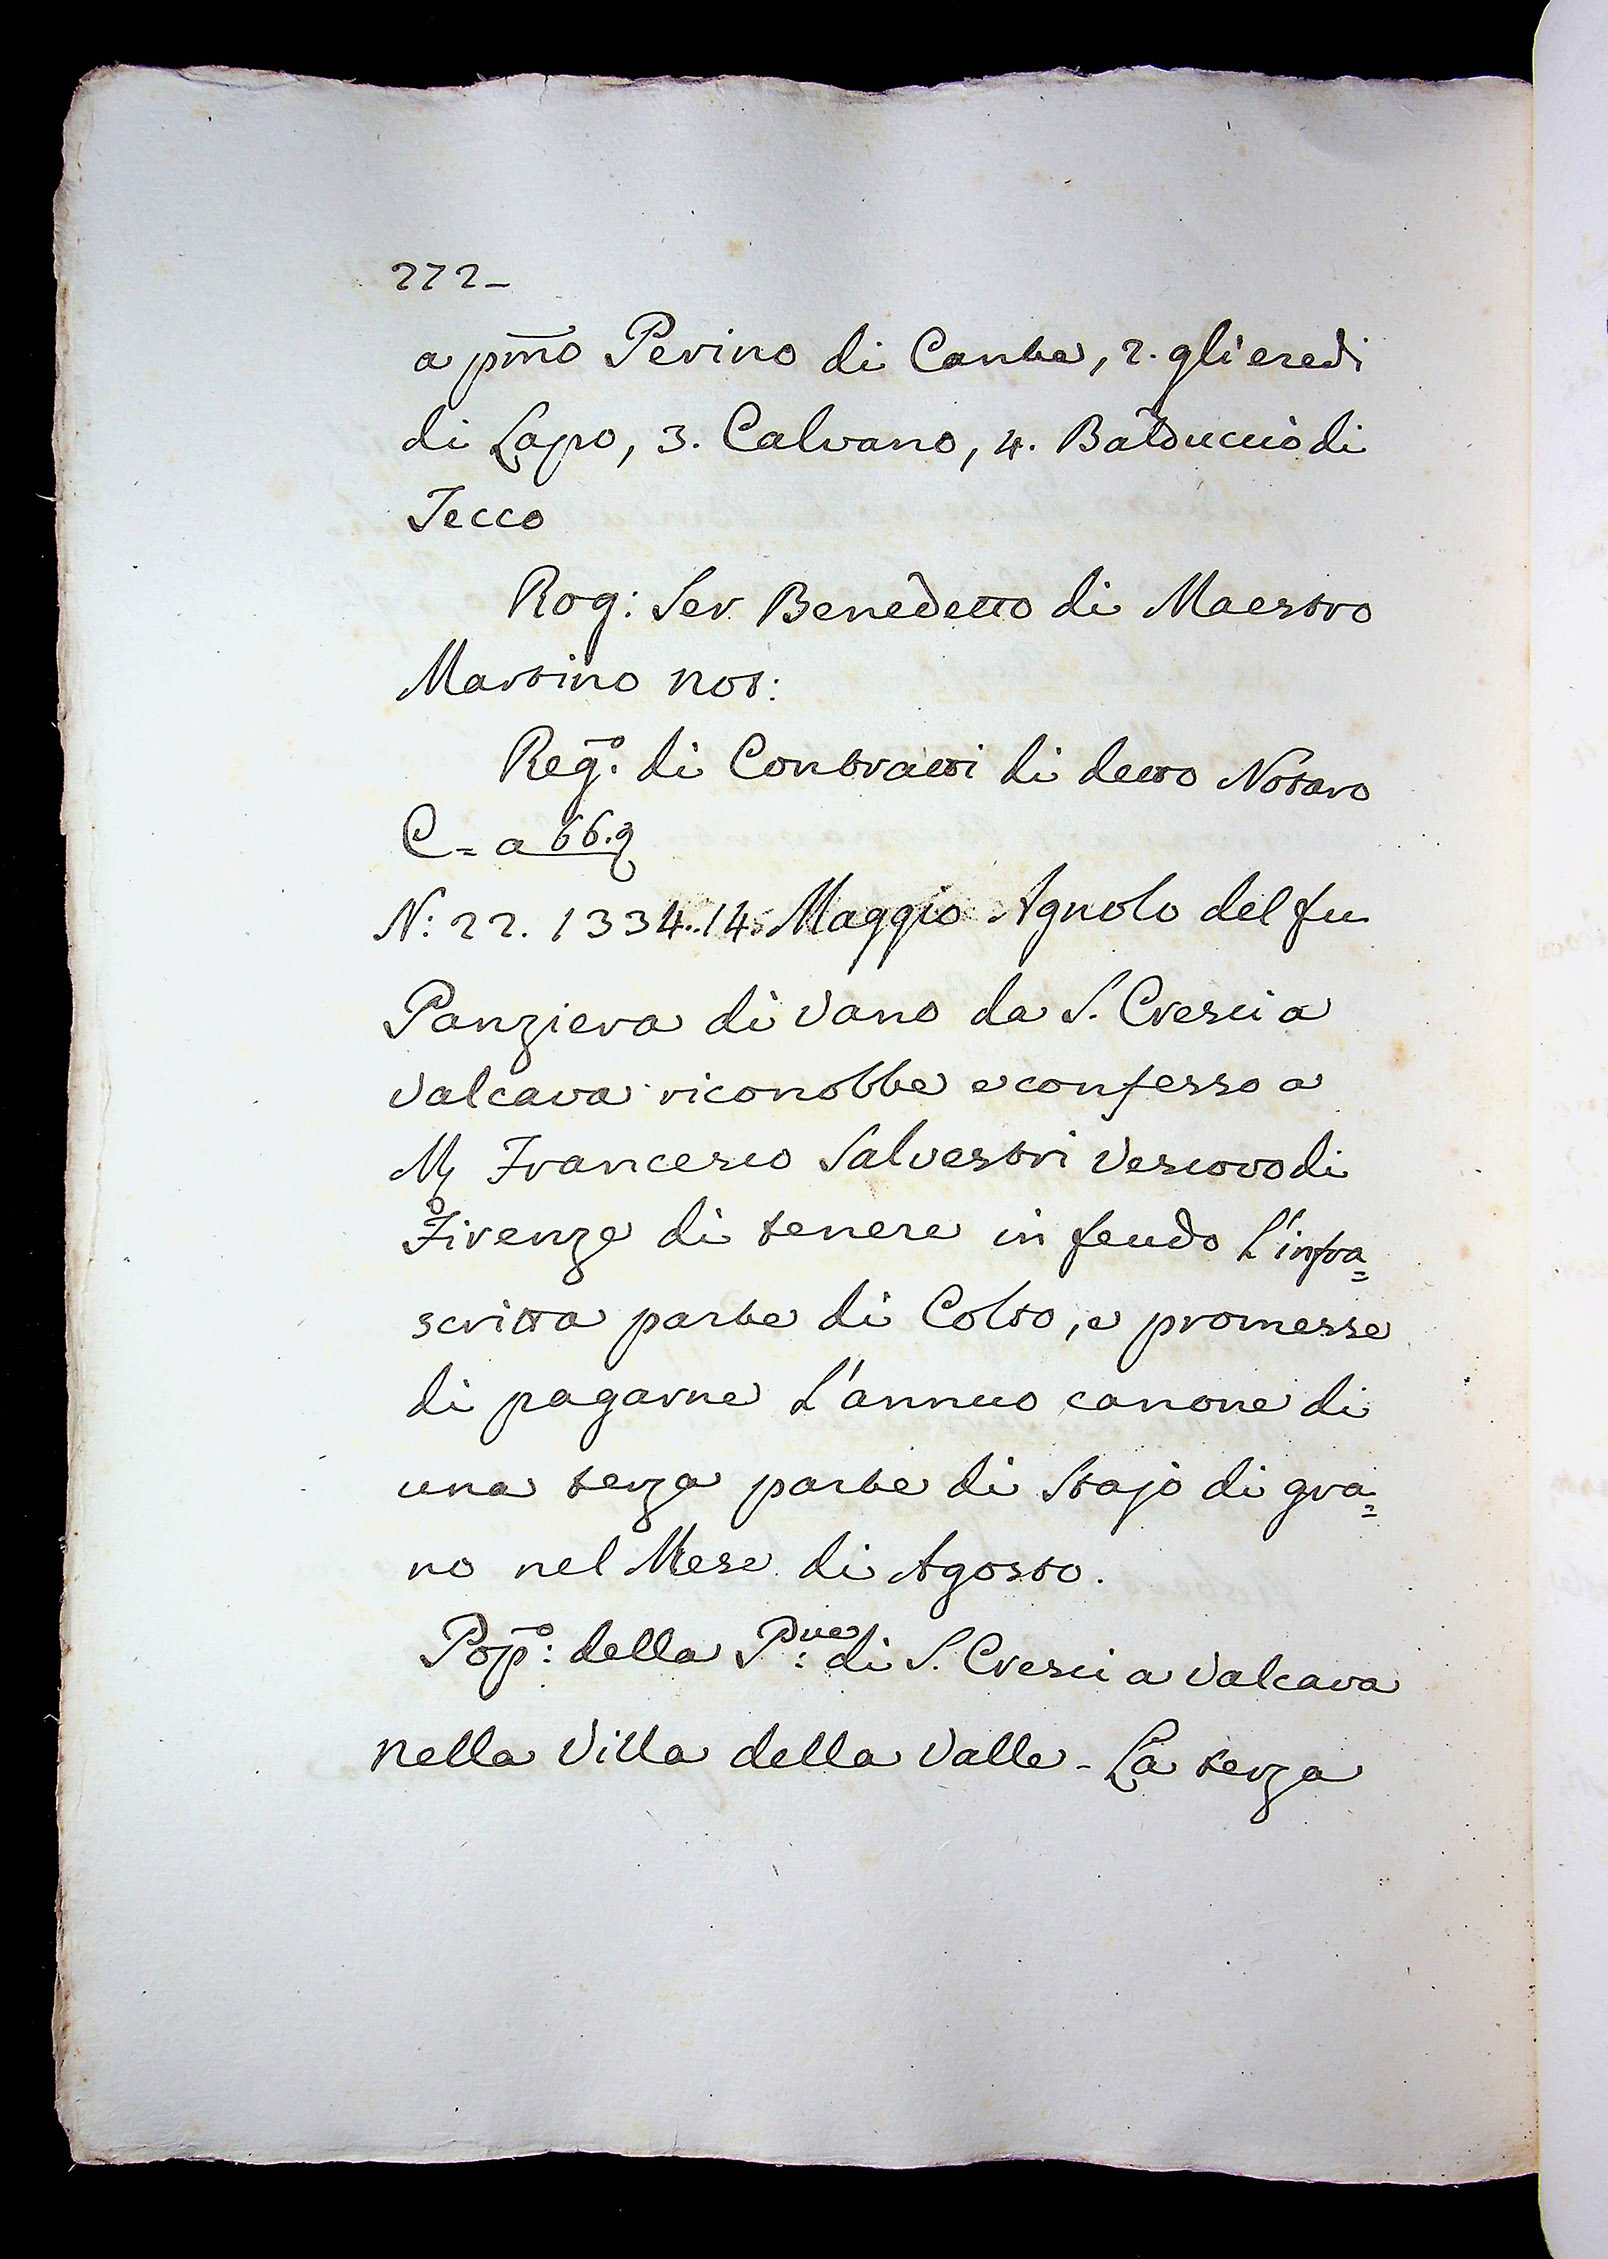 272_
a pm̃o Perino di Cante, 2. gli eredi
di Lapo, 3. Calvano, 4. Balduccio di
Tecco
Rog: Ser Benedetto di Maestro
Martino not:
Reg.º di Contratti di detto Notaro
C = a 66.
N: 22. 1334..14. Maggio Agnolo del fu
Panziera di Vano da S. Cresci a
Valcava riconobbe e confesso a
M. Francesco Salvestri Vescovo di
Firenze di tenere in feudo L'infra=
scritta parte di Colto, e promesse
di pagarne L'annuo canone di
una terza parte di Stajo di gra=
no nel Mese di Agosto.
Pop.º: della P.ve: di S. Cresci a Valcava
nella Villa della Valle - La terza